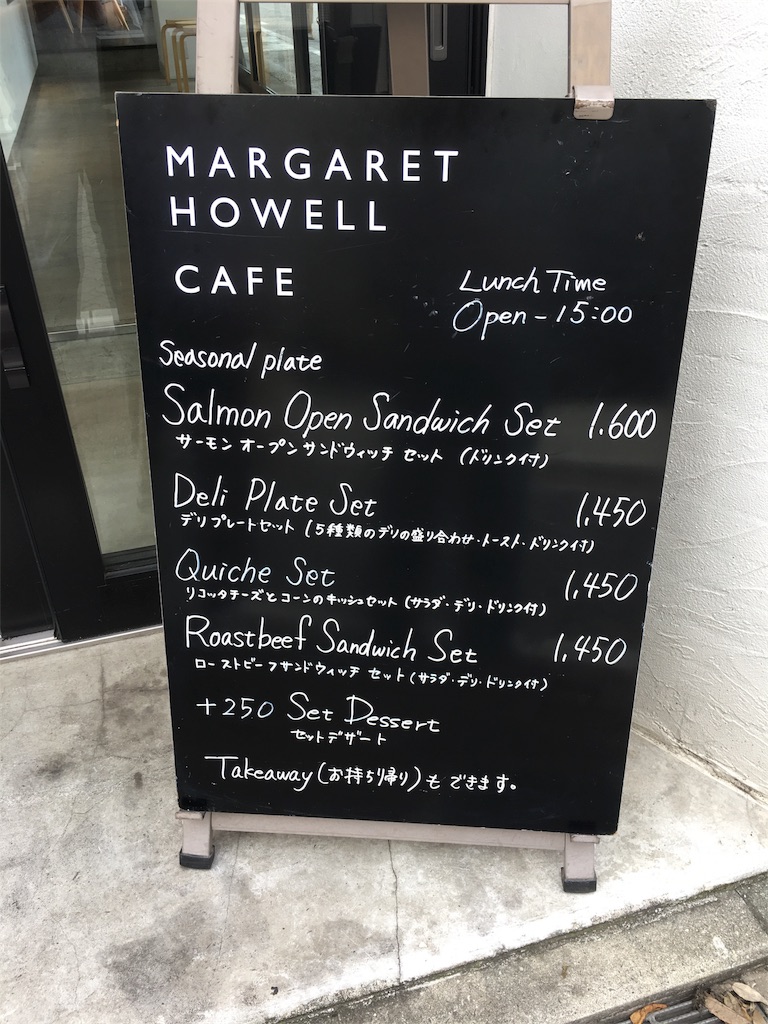 MARGARET
HOWELL
CAFE
Lunch Time
Open - 15:00
Seasonal plate
Salmon Open Sandwich Set 1.600
サーモン オープンサンドウィッチ セット (ドリンク付)
Deli Plate Set 1,450
デリプレートセット (5種類のデリの盛り合わせ・トースト・ドリンク付)
Quiche Set 1,450
リコッタチーズとコーンのキッシュセット (サラダ・デリ・ドリンク付)
Roastbeef Sandwich Set 1,450
ローストビーフサンドウィッチ セット (サラダ・デリ・ドリンク付)
+250 Set Dessert
セットデザート
Takeaway (お持ち帰り) も できます。